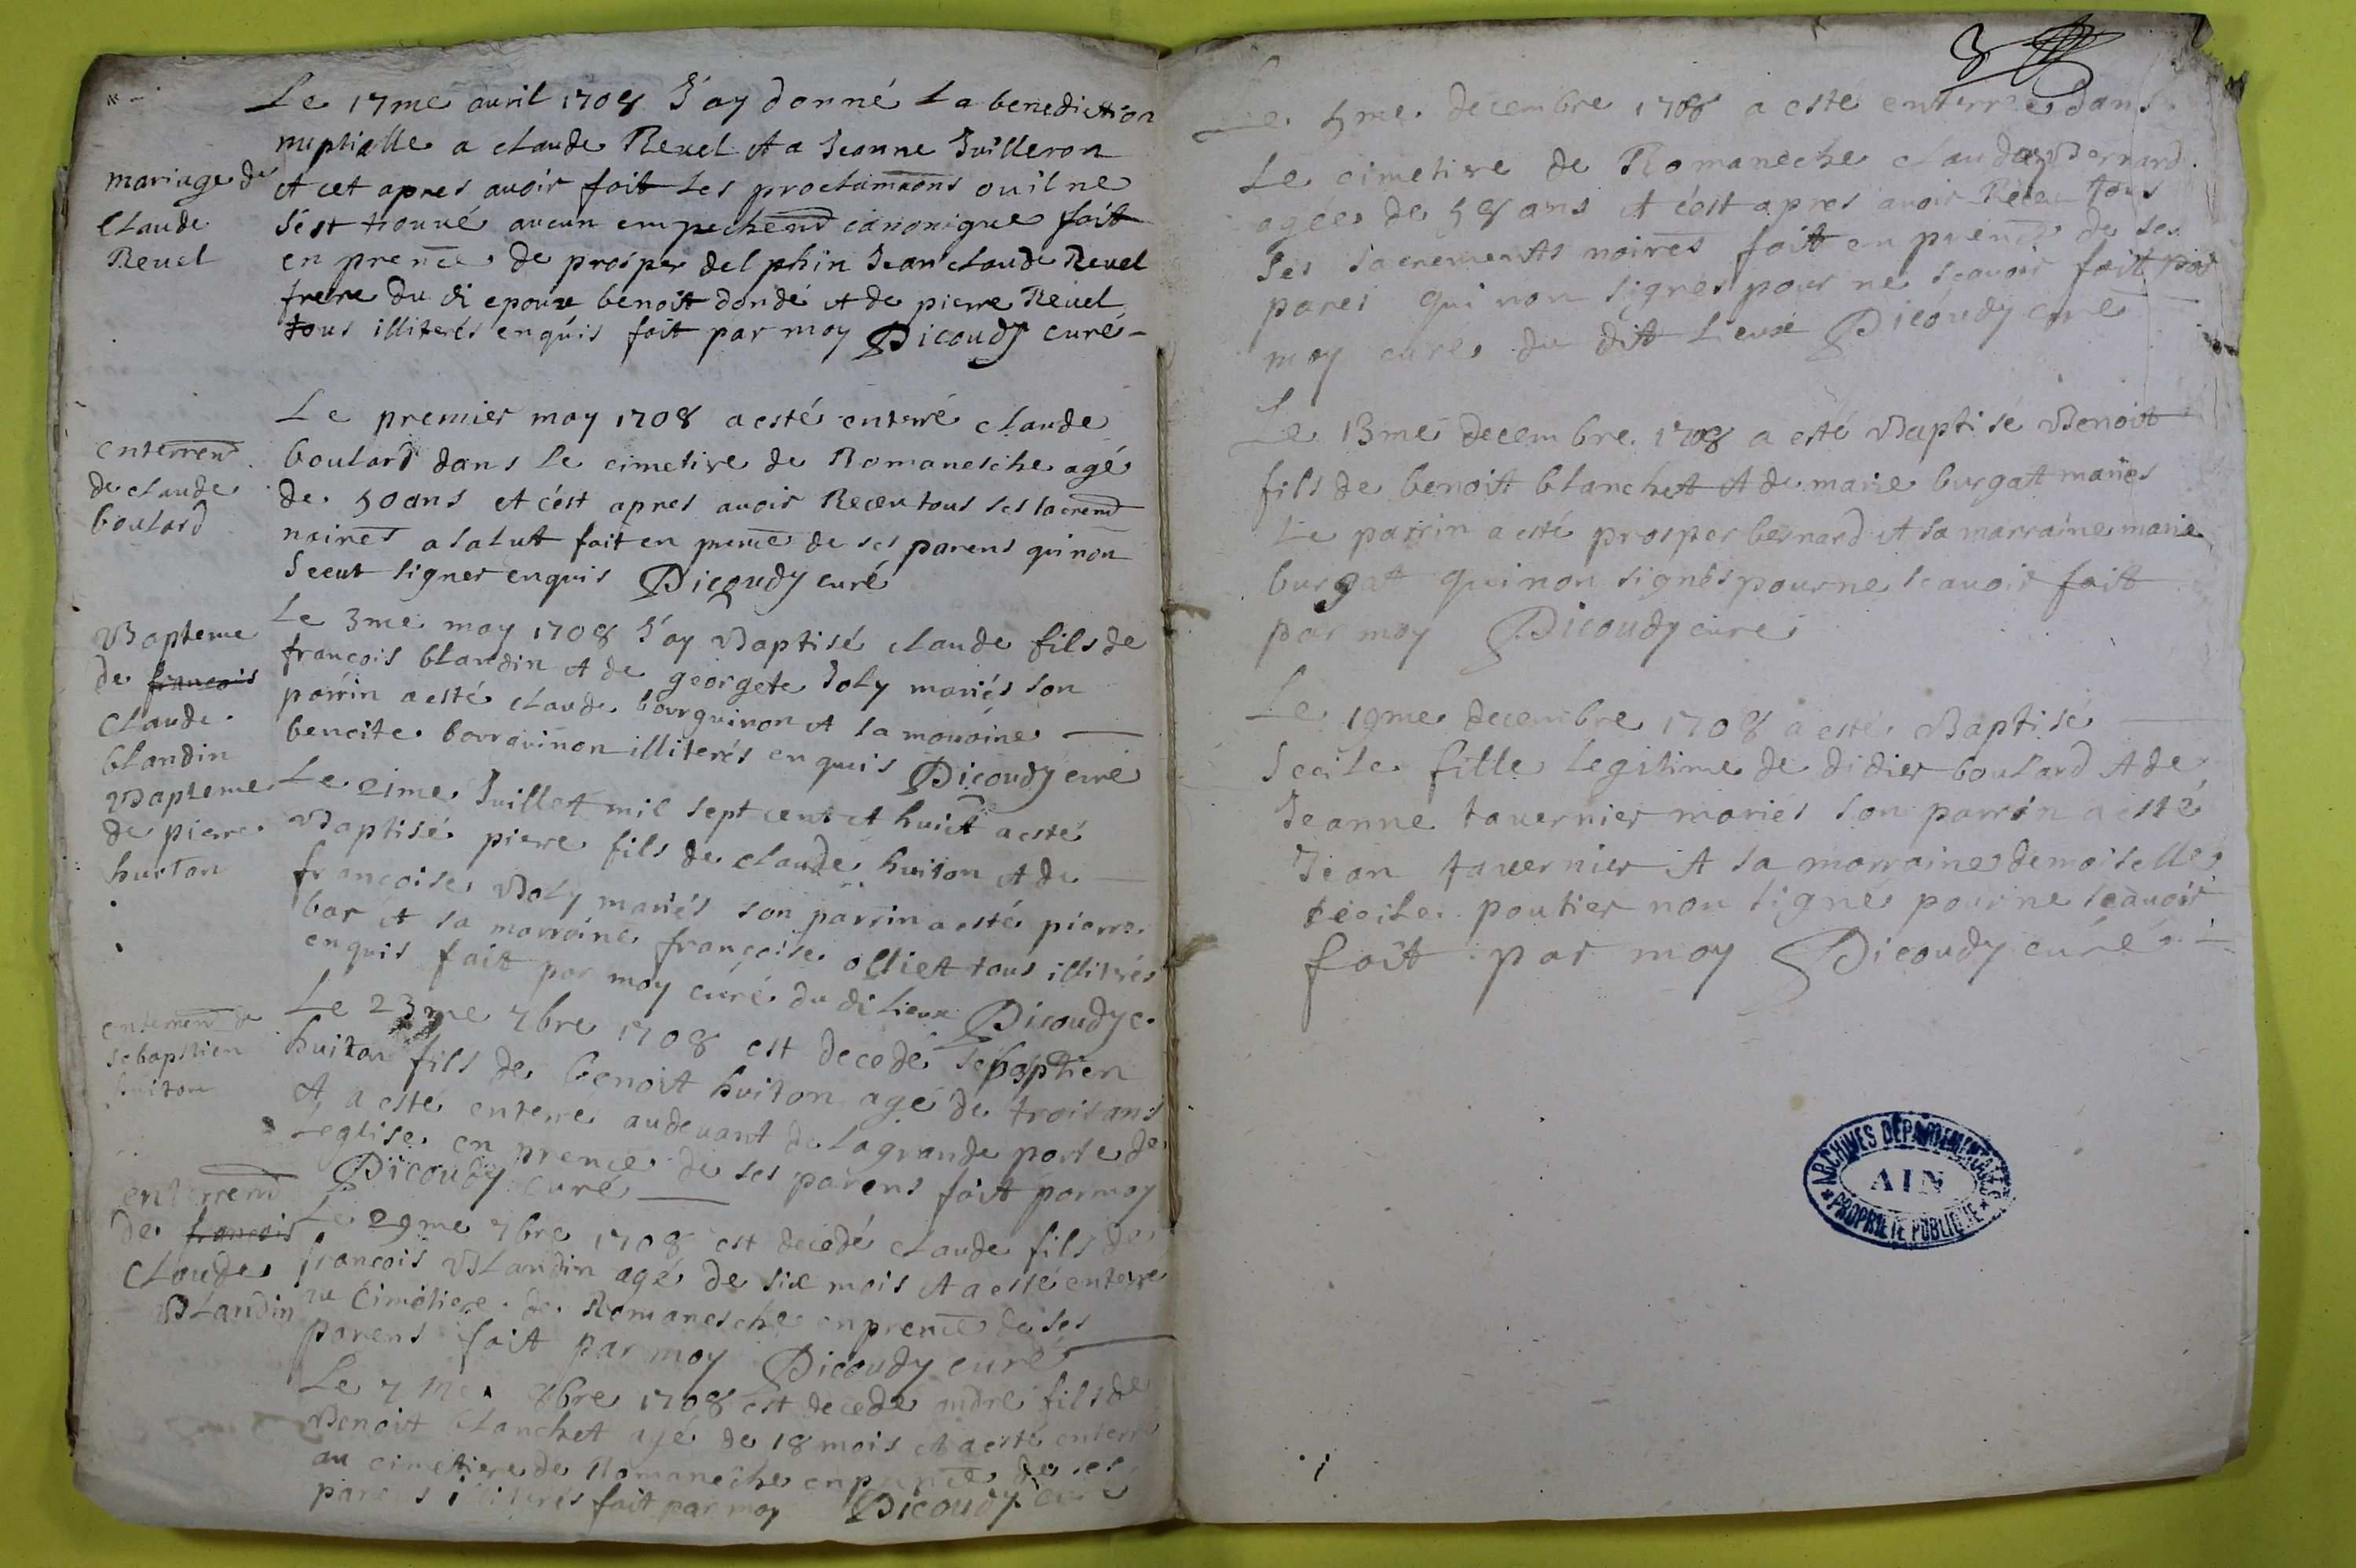 Le 17me auril 1708 J'ay donné la benediction
nuptialle a claude Reuel et a Jeanne Juilleron
mariage de
claude
Reuel
et cet apres auoir fait les proclamaons ou il ne
s'est trouué aucun empechent canonique fait
en prence de prosper delphin Jean claude Reuel
frere du di epoux benoit dondé et de pierre Reuel
tous illiterés enquis fait par moy Dicoudy curé
Le premier may 1708 a esté enterré claude
enterrent
de claude
boulard
boulard dans le cimetire de Romanesche agé
de 50 ans et c'est apres auoir Receu tous ses sacremt
naires a salut fait en prence de ses parens qui non
sceut signer enquis Dicoudy curé
Bapteme
de françois
claude
blandin
Le 3me may 1708 J'ay Baptisé claude fils de
françois blandin et de georgete Joly mariés son
parrin a esté claude bourguinon et la
benoite bourguinon illiterés enquis Dicoudy curé
Bapteme
de pierre
huiton
Le 21me Juillet mil sept cent et huict a esté
Baptisé piere fils de claude huiton et de
françoise Boly mariés son parrin a esté pierre
bar et sa marraine françoise olliet tous illitrés
enquis fait par moy curé du di lieux Dicoudy c.
enterrent de
sebastien
huiton
Le 23me 7bre 1708 est decedé sebastien
huiton fils de benoit huiton agé de trois ans
et a esté enterré au deuant de la grande porte de
l'eglise en prence de ses parens fait par moy
Dicoudy curé
enterrent
de françois
claude
Blandin
Le 29me 7bre 1708 est decedé claude fils de
françois Blandin agé de six mois et a esté enterré
au Cimetiere de Romanesche en prence de ses
parens fait par moy Dicoudy curé
Le 7me 8bre 1708 est decedé andre fils de
Benoit blanchet agé de 18 mois et a esté enterré
au cimetiere de Romaneche en prence de ses
parens illiterés fait par moy Dicoudy curé
3
Le 5me decembre 1708 a esté enterrée dans
Le cimetire de Romaneche claudaz Bernard
agée de 58 ans et c'est apres auoir Receu tous
ses sacrements naires fait en prence de ses
pares qui non signés pour ne scauoir fait par
moy curé du dit Lieux Dicoudy curé
Le 13me decembre 1708 a esté Baptisé Benoit
fils de benoit blanchet et de marie burgat mariés
Le parrin a esté prosper bernard et sa marraine marie
burgat qui non signés pour ne scauoir fait
par moy Dicoudy curé
Le 19me decembre 1708 a esté Baptisé
Secile fille legitime de didier boulard et de
Jeanne tauernier mariés son parrin a esté
Jean tauernier et sa marraine demoiselle
cecile poutier non signé pour ne scauoir
fait par moy Dicoudy curé
ARCHIVES DÉPARTEMENTALES
AIN
PROPRIÉTÉ PUBLIQUE